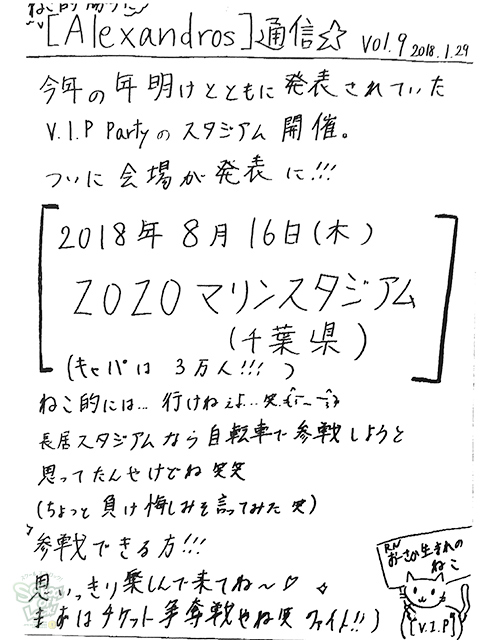 [Alexandros]通信☆ VOl.9 2018.1.29
今年の年明けとともに発表されていた
V.I.P Partyのスタジアム開催。
ついに会場が発表に!!!
2018年 8月16日(木)
ZOZOマリンスタジアム
(千葉県)
(キャパは 3万人!!!)
ねこ的には… 行けねぇよ…笑
長居スタジアムなら自転車で参戦しようと
思ってたんやけどね笑笑
(ちょっと負け惜しみを言ってみた笑)
参戦できる方!!!
思いっきり楽しんで来てね〜♡
まあはチケット争奪戦やね笑 ファイト!!)
RN
おーさか生まれの
ねこ
[V.I.P]